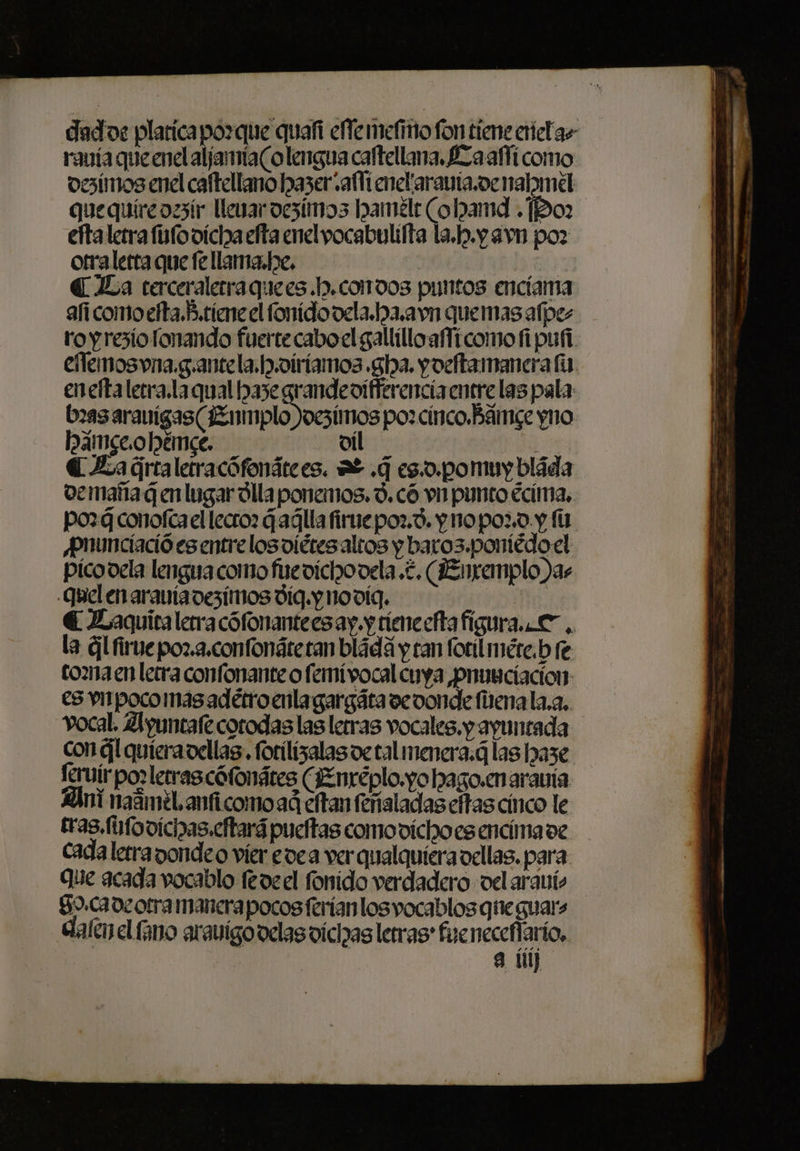 dad de platica porque quasi essemesmo son tiene enel a-
rauia que enel aljamia(o lengua castellana. Ca assi como
dezimos enel castellano hazer .assi enel arauia.de nahmel
que quire dezir lleuar dezimos hamelt (o hamd . Por
esta letra suso dicha esta enel vocabulista la.h.y avn por
otra letra que se llama.he.
¶ La tercera letra que es .h. con dos puntos encima
asi como esta.ḧ.tiene el sonido dela.ha.avn que mas aspe-
ro y rezio sonando fuerte cabo el gallillo assi como si pusi
essemos vna.g.ante la.h.diriamos .gha. y desta manera su
en esta letra.la qual haze grande differencia entre las pala
bras arauigas(Enxmplo)dezimos por cinco.ḧämçe y no
hämçe.o hemçe. dil
¶ La q̃rta letra cõsonãte es. .q̃ es.d.po muy blãda
de maña q̃ en lugar õlla ponemos. d̄. cõ vn punto ẽcima.
por q̃ conosca el lector q̃ aq̃lla sirue por.d̄. y no por.d.y su
pnunciaciõ es entre los diẽtes altos y baxos.poniẽdo el
pico dela lengua como fue dicho dela .t̄. (Enxemplo)a-
quel en arauia dezimos d̄iq.y no diq.
¶ La quita letra cõsonante es ay.y tiene esta figura..
la q̃l sirue por.a.consonãte tan blãda y tan sotil mẽte.b se
torna en letra consonante o semivocal cuya pnunciacion
es vn poco mas adẽtro enla gargãta de donde suena la.a.
vocal. Ayuntase cõ todas las letras vocales.y ayuntada
con q̃l quiera dellas . sotilizalas de tal menera.q̃ las haze
seruir por letras cõsonãtes (Enxẽplo.yo hago.en arauia
Ani naamel.ansi como aq̃ estan señaladas estas cinco le
tras.suso dichas.estarã puestas como dicho es encima de
cada letra donde o vier e de a ver qualquiera dellas. para
que acada vocablo se de el sonido verdadero del araui-
go.ca de otra manera pocos serian los vocablos que guar-
dasen el sano arauigo delas dichas letras: fue necessario.
a iiij